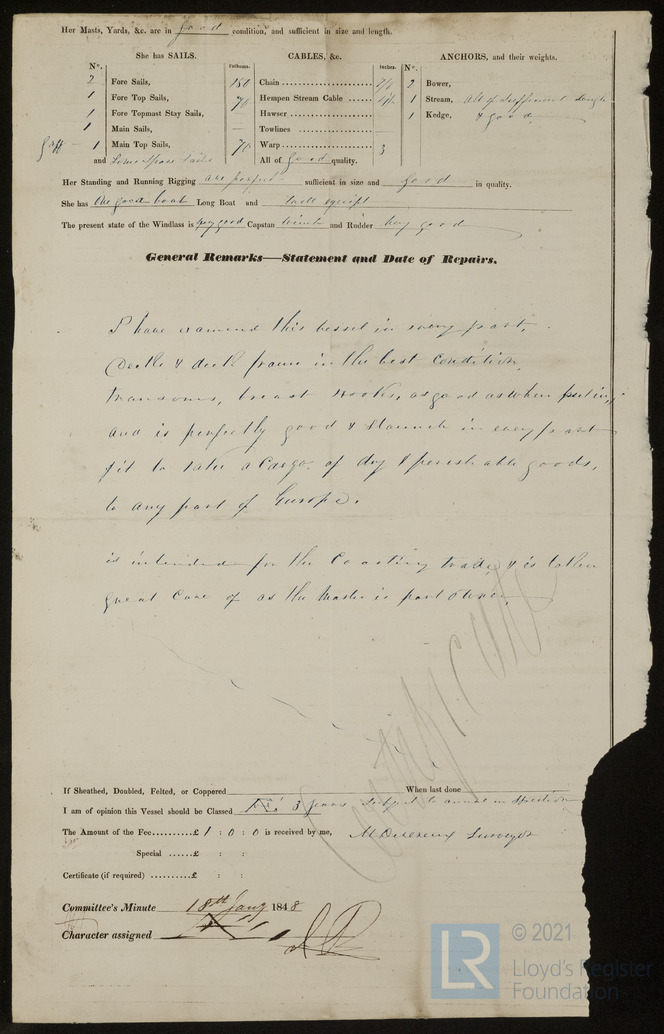 Her Masts, Yards, &c. are in good condition, and sufficient in size and length.
She has SAILS. CABLES, &c. ANCHORS, and their weights.
N°. Fathoms. Inches. N°.
2 Fore Sails, 180 Chain 2 Bower,
1 Fore Top Sails, 70 Hempen Stream Cable 1 Stream, all of sufficient
1 Fore Topmast Stay Sails, Hawser 1 Kedge, & good
1 Main Sails, — Towlines —
Gaff — 1 Main Top Sails, 70 Warp 3
and Some Spare Sails All of Good quality.
Her Standing and Running Rigging are sufficient in size and Good in quality.
She has One good boat Long Boat and well equipt
The present state of the Windlass is very good Capstan and Rudder very good
General Remarks—Statement and Date of Repairs.
I have examend this vessel in every part.
Decks & deck frame in the best condition
transoms, breast Hooks, as good as when put in,
and is perfectly good & staunch in every part
fit to take a Cargo of dry & perishable goods,
to any part of Europe.
is intended for the Coasting trade & is taken
great care of as the Master is part Owner
If Sheathed, Doubled, Felted, or Coppered When last done
I am of opinion this Vessel should be Classed 3 years subject to annual
The Amount of the Fee £ 1 : 0 : 0 is received by me, Surveyor
Special £ : :
Certificate (if required) £ : :
Committee's Minute 18th Jany 1848
Character assigned
LR © 2021
Lloyd's Register
Foundation